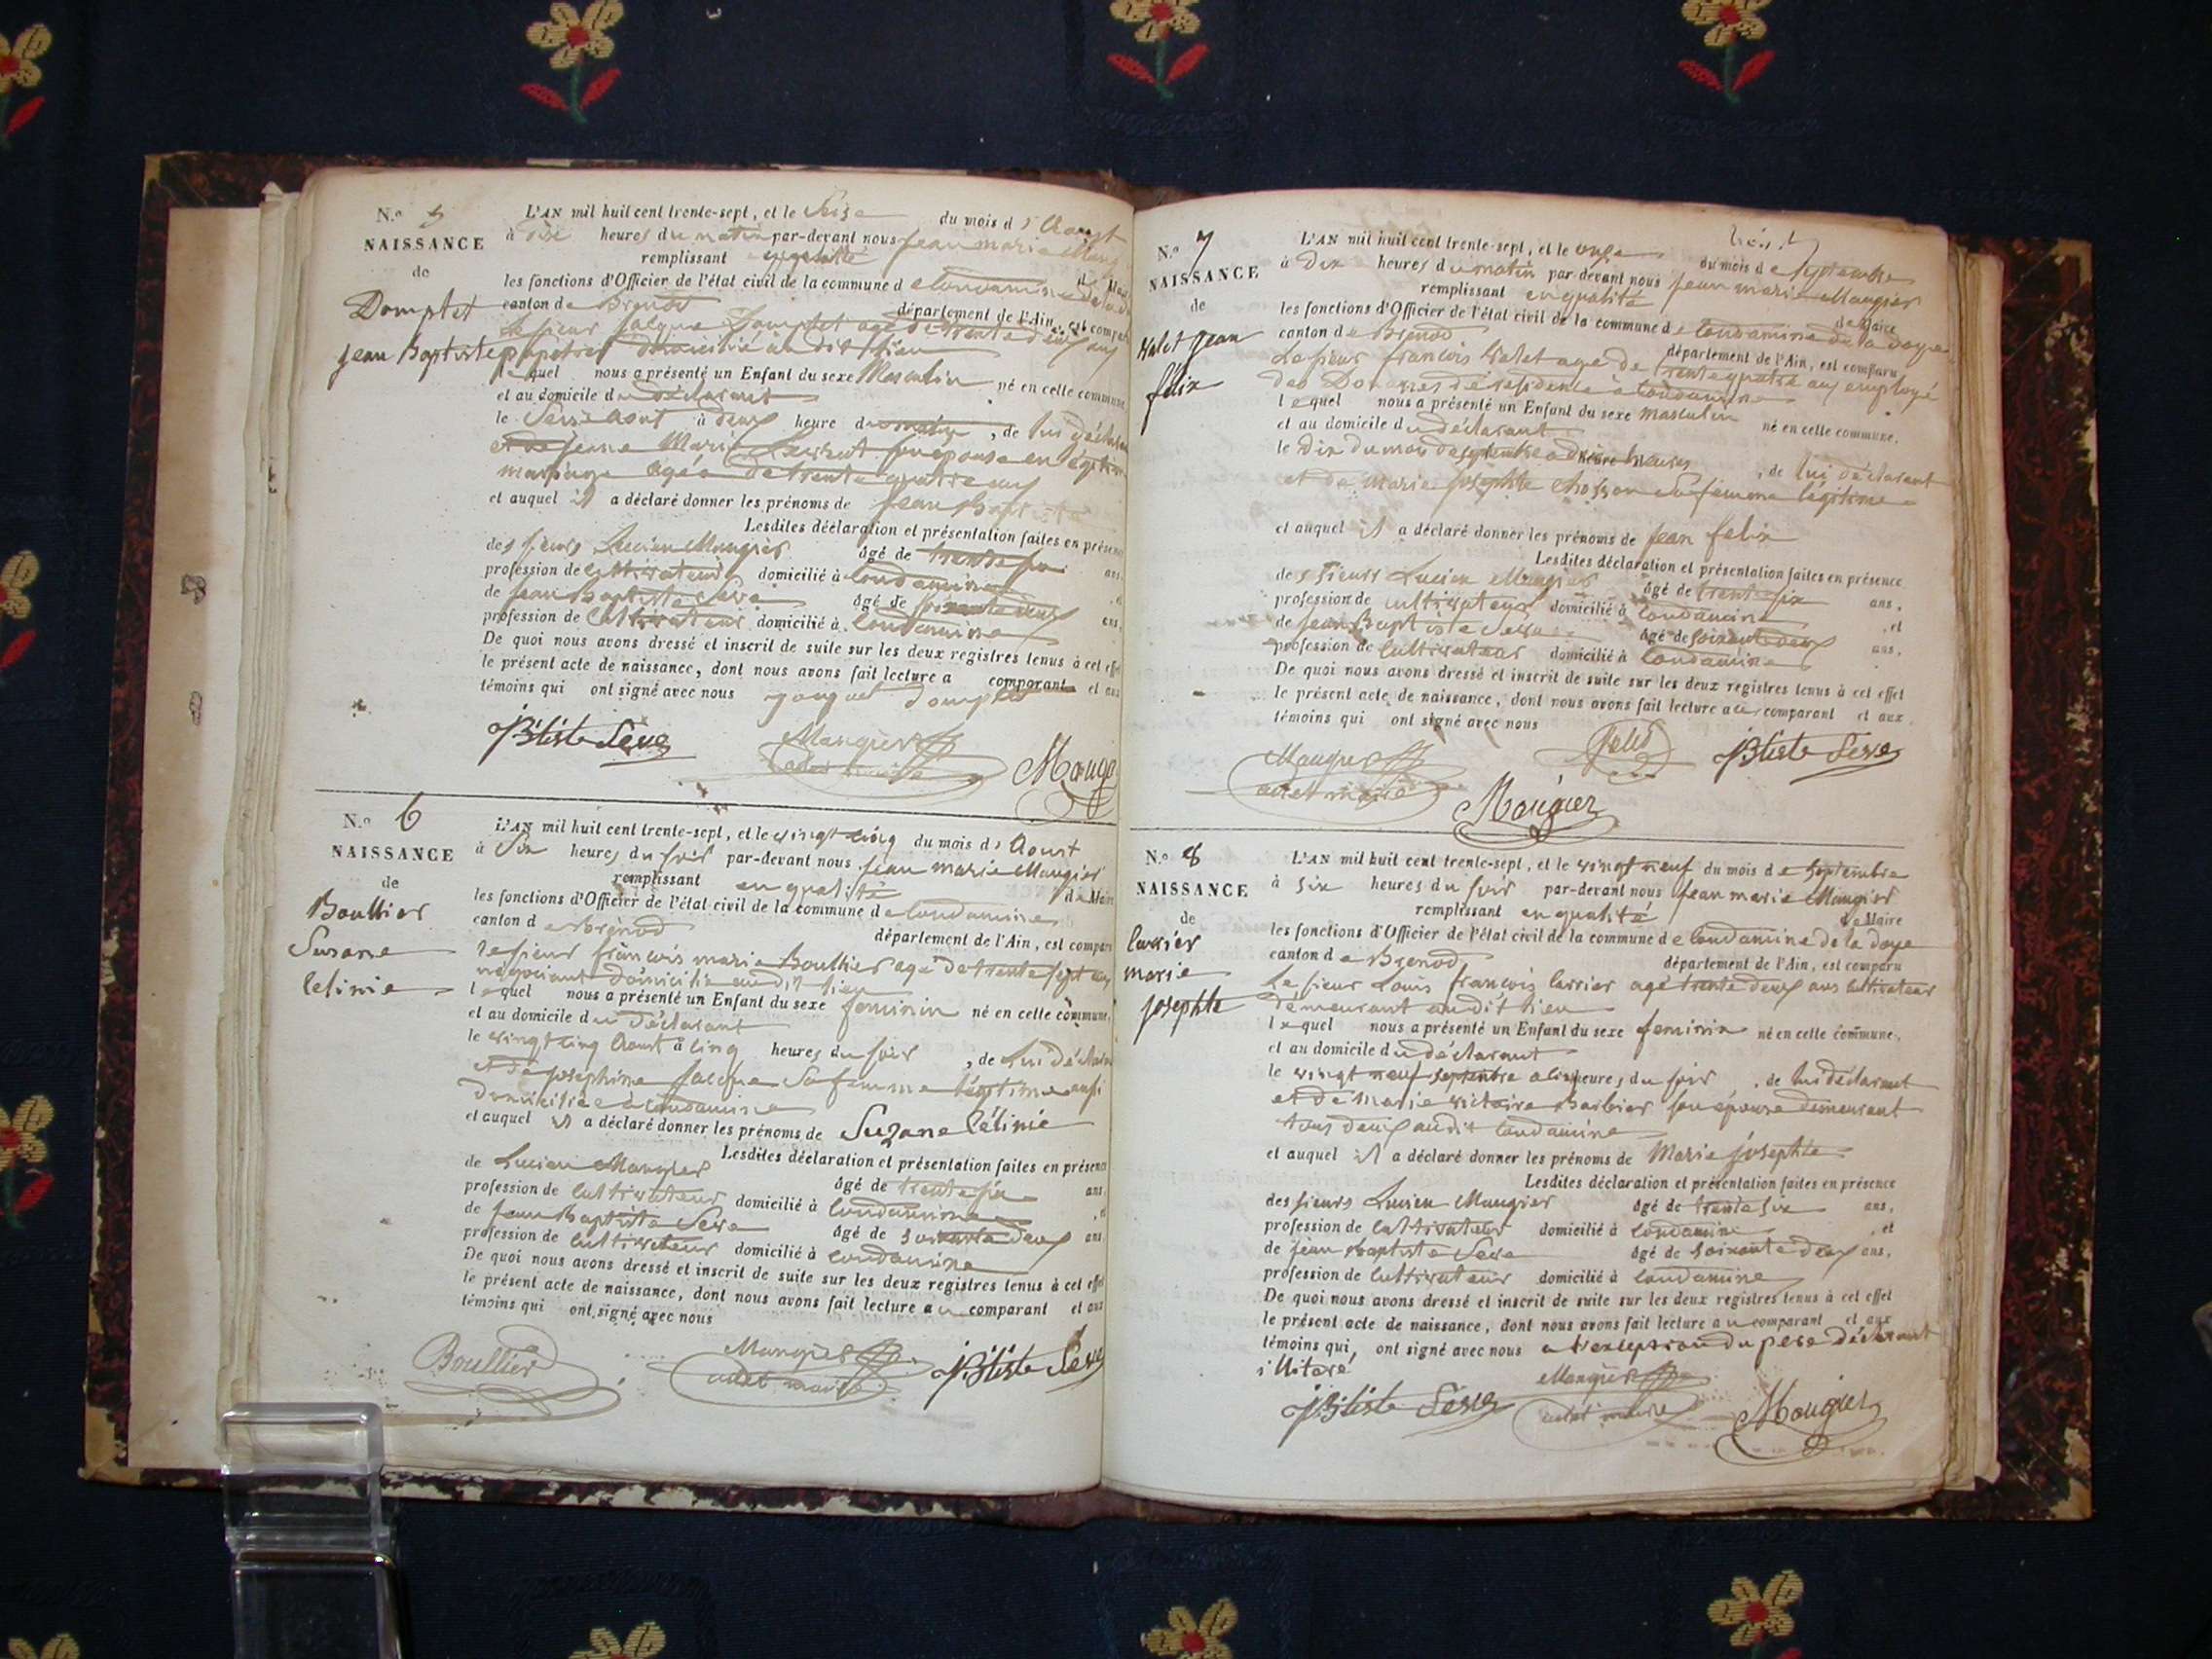 N.o 5
NAISSANCE
de
Domptet
Jean Baptiste
L'AN mil huit cent trente-sept, et le Seize du mois d'Aoust
à dix heures du matin par-devant nous Jean marie Maug
remplissant en qualité de Mai
les fonctions d'Officier de l'état civil de la commune de Condamine de la
canton de Brenod département de l'Ain, est compar
Le sieur Jacque Domptet agé de trente deux ans
domicilié au dit lieu
lequel nous a présenté un Enfant du sexe Masculin né en cette commune
et au domicile du déclarant
le Seize Aout à deux heure du matin, de lui déclarant
et de Jeane Marie son épouse en légitime
mariage agée de trente quatre ans
et auquel il a déclaré donner les prénoms de Jean Baptiste
Lesdites déclaration et présentation faites en présence
des sieurs Lucien Maugier âgé de trente six ans,
profession de Cultivateur domicilié à Condamine
de Jean Baptiste Seve âgé de soixante deux ans,
profession de Cultivateur domicilié à Condamine
De quoi nous avons dressé et inscrit de suite sur les deux registres tenus à cet effet
le présent acte de naissance, dont nous avons fait lecture a comparant et aux
témoins qui ont signé avec nous Jacque Domptet
JBtiste Seve Maugier Maugier
adet maire
N.o 6
NAISSANCE
de
Boullier
Susane
Celinie
L'AN mil huit cent trente-sept, et le vingt cinq du mois d'Aoust
à Six heures du soir par-devant nous Jean marie Maugier
remplissant en qualité de Maire
les fonctions d'Officier de l'état civil de la commune de Condamine
canton de Brenod département de l'Ain, est comparu
le sieur françois marie Boullier agé de trente sept ans
négociant domicilié au dit lieu
lequel nous a présenté un Enfant du sexe feminin né en cette commune,
et au domicile du déclarant
le vingt cinq Aout à cinq heures du soir, de Lui déclarant
et de josephine Jacque Sa femme légitime aussi
domiciliée à Condamine
et auquel il a déclaré donner les prénoms de Suzane Célinie
Lesdites déclaration et présentation faites en présence
de Lucien Maugier âgé de trente six ans,
profession de Cultivateur domicilié à Condamine
de Jean Baptiste Seve âgé de soixante deux ans
profession de Cultivateur domicilié à Condamine
De quoi nous avons dressé et inscrit de suite sur les deux registres tenus à cet effet
le présent acte de naissance, dont nous avons fait lecture au comparant et aux
témoins qui ont signé avec nous
Boullier Maugier JBtiste Seve
adet maire
N.o 7
NAISSANCE
de
Valet Jean
felix
L'AN mil huit cent trente-sept, et le onze du mois de septembre
à Dix heures du matin par-devant nous Jean marie Maugier
remplissant en qualité de Maire
les fonctions d'Officier de l'état civil de la commune de Condamine de la doye
canton de Brenod département de l'Ain, est comparu
Le sieur francois Valet age de trente quatre ans employé
des Douanes de residence à Condamine
lequel nous a présenté un Enfant du sexe masculin né en cette commune,
et au domicile du déclarant
le Dix du mois de septembre a heures, de lui déclarant
et de marie josephte Chosson sa femme légitime
et auquel il a déclaré donner les prénoms de Jean felix
Lesdites déclaration et présentation faites en présence
des sieurs Lucien Maugier âgé de trente six ans,
profession de cultivateur domicilié à Condamine, et
de Jean Baptiste Seve âgé de soixante deux ans,
profession de Cultivateur domicilié à Condamine
De quoi nous avons dressé et inscrit de suite sur les deux registres tenus à cet effet
le présent acte de naissance, dont nous avons fait lecture au comparant et aux
témoins qui ont signé avec nous
Maugier JBtiste Seve
adet maire Maugier
N.o 8
NAISSANCE
de
Carrier
marie
josephte
L'AN mil huit cent trente-sept, et le vingt neuf du mois de Septembre
à six heures du soir par-devant nous Jean marie Maugier
remplissant en qualité de Maire
les fonctions d'Officier de l'état civil de la commune de Condamine de la doye
canton de Brenod département de l'Ain, est comparu
Le sieur Louis françois Carrier agé trente deux ans Cultivateur
demeurant audit lieu
lequel nous a présenté un Enfant du sexe feminin né en cette commune,
et au domicile du déclarant
le vingt neuf septembre a cinq heures du soir, de lui déclarant
et de Marie victoire Barbier son épouse demeurant
tous deux audit Condamine
et auquel il a déclaré donner les prénoms de Marie josephte
Lesdites déclaration et présentation faites en présence
des sieurs Lucien Maugier âgé de trente six ans,
profession de Cultivateur domicilié à Condamine, et
de Jean Baptiste Seve âgé de soixante deux ans,
profession de Cultivateur domicilié à Condamine
De quoi nous avons dressé et inscrit de suite sur les deux registres tenus à cet effet
le présent acte de naissance, dont nous avons fait lecture au comparant et aux
témoins qui, ont signé avec nous a l'exception du pere déclarant
illitéré
JBtiste Seve Maugier Maugier
adet maire